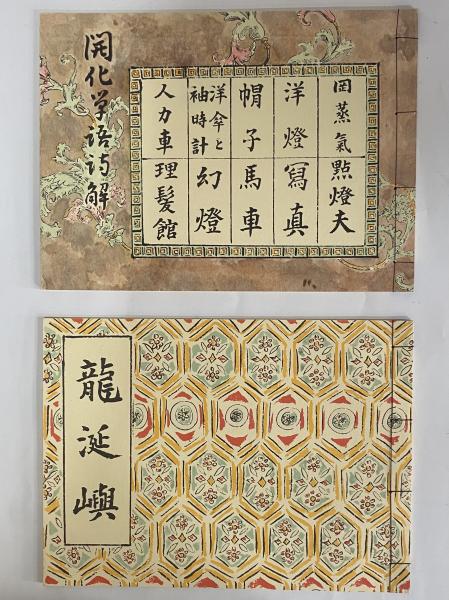 開化学語詩解
岡蒸氣
洋燈
帽子
洋傘と
袖時計
人力車
點燈夫
寫真
馬車
幻燈
理髮館
龍涎嶼